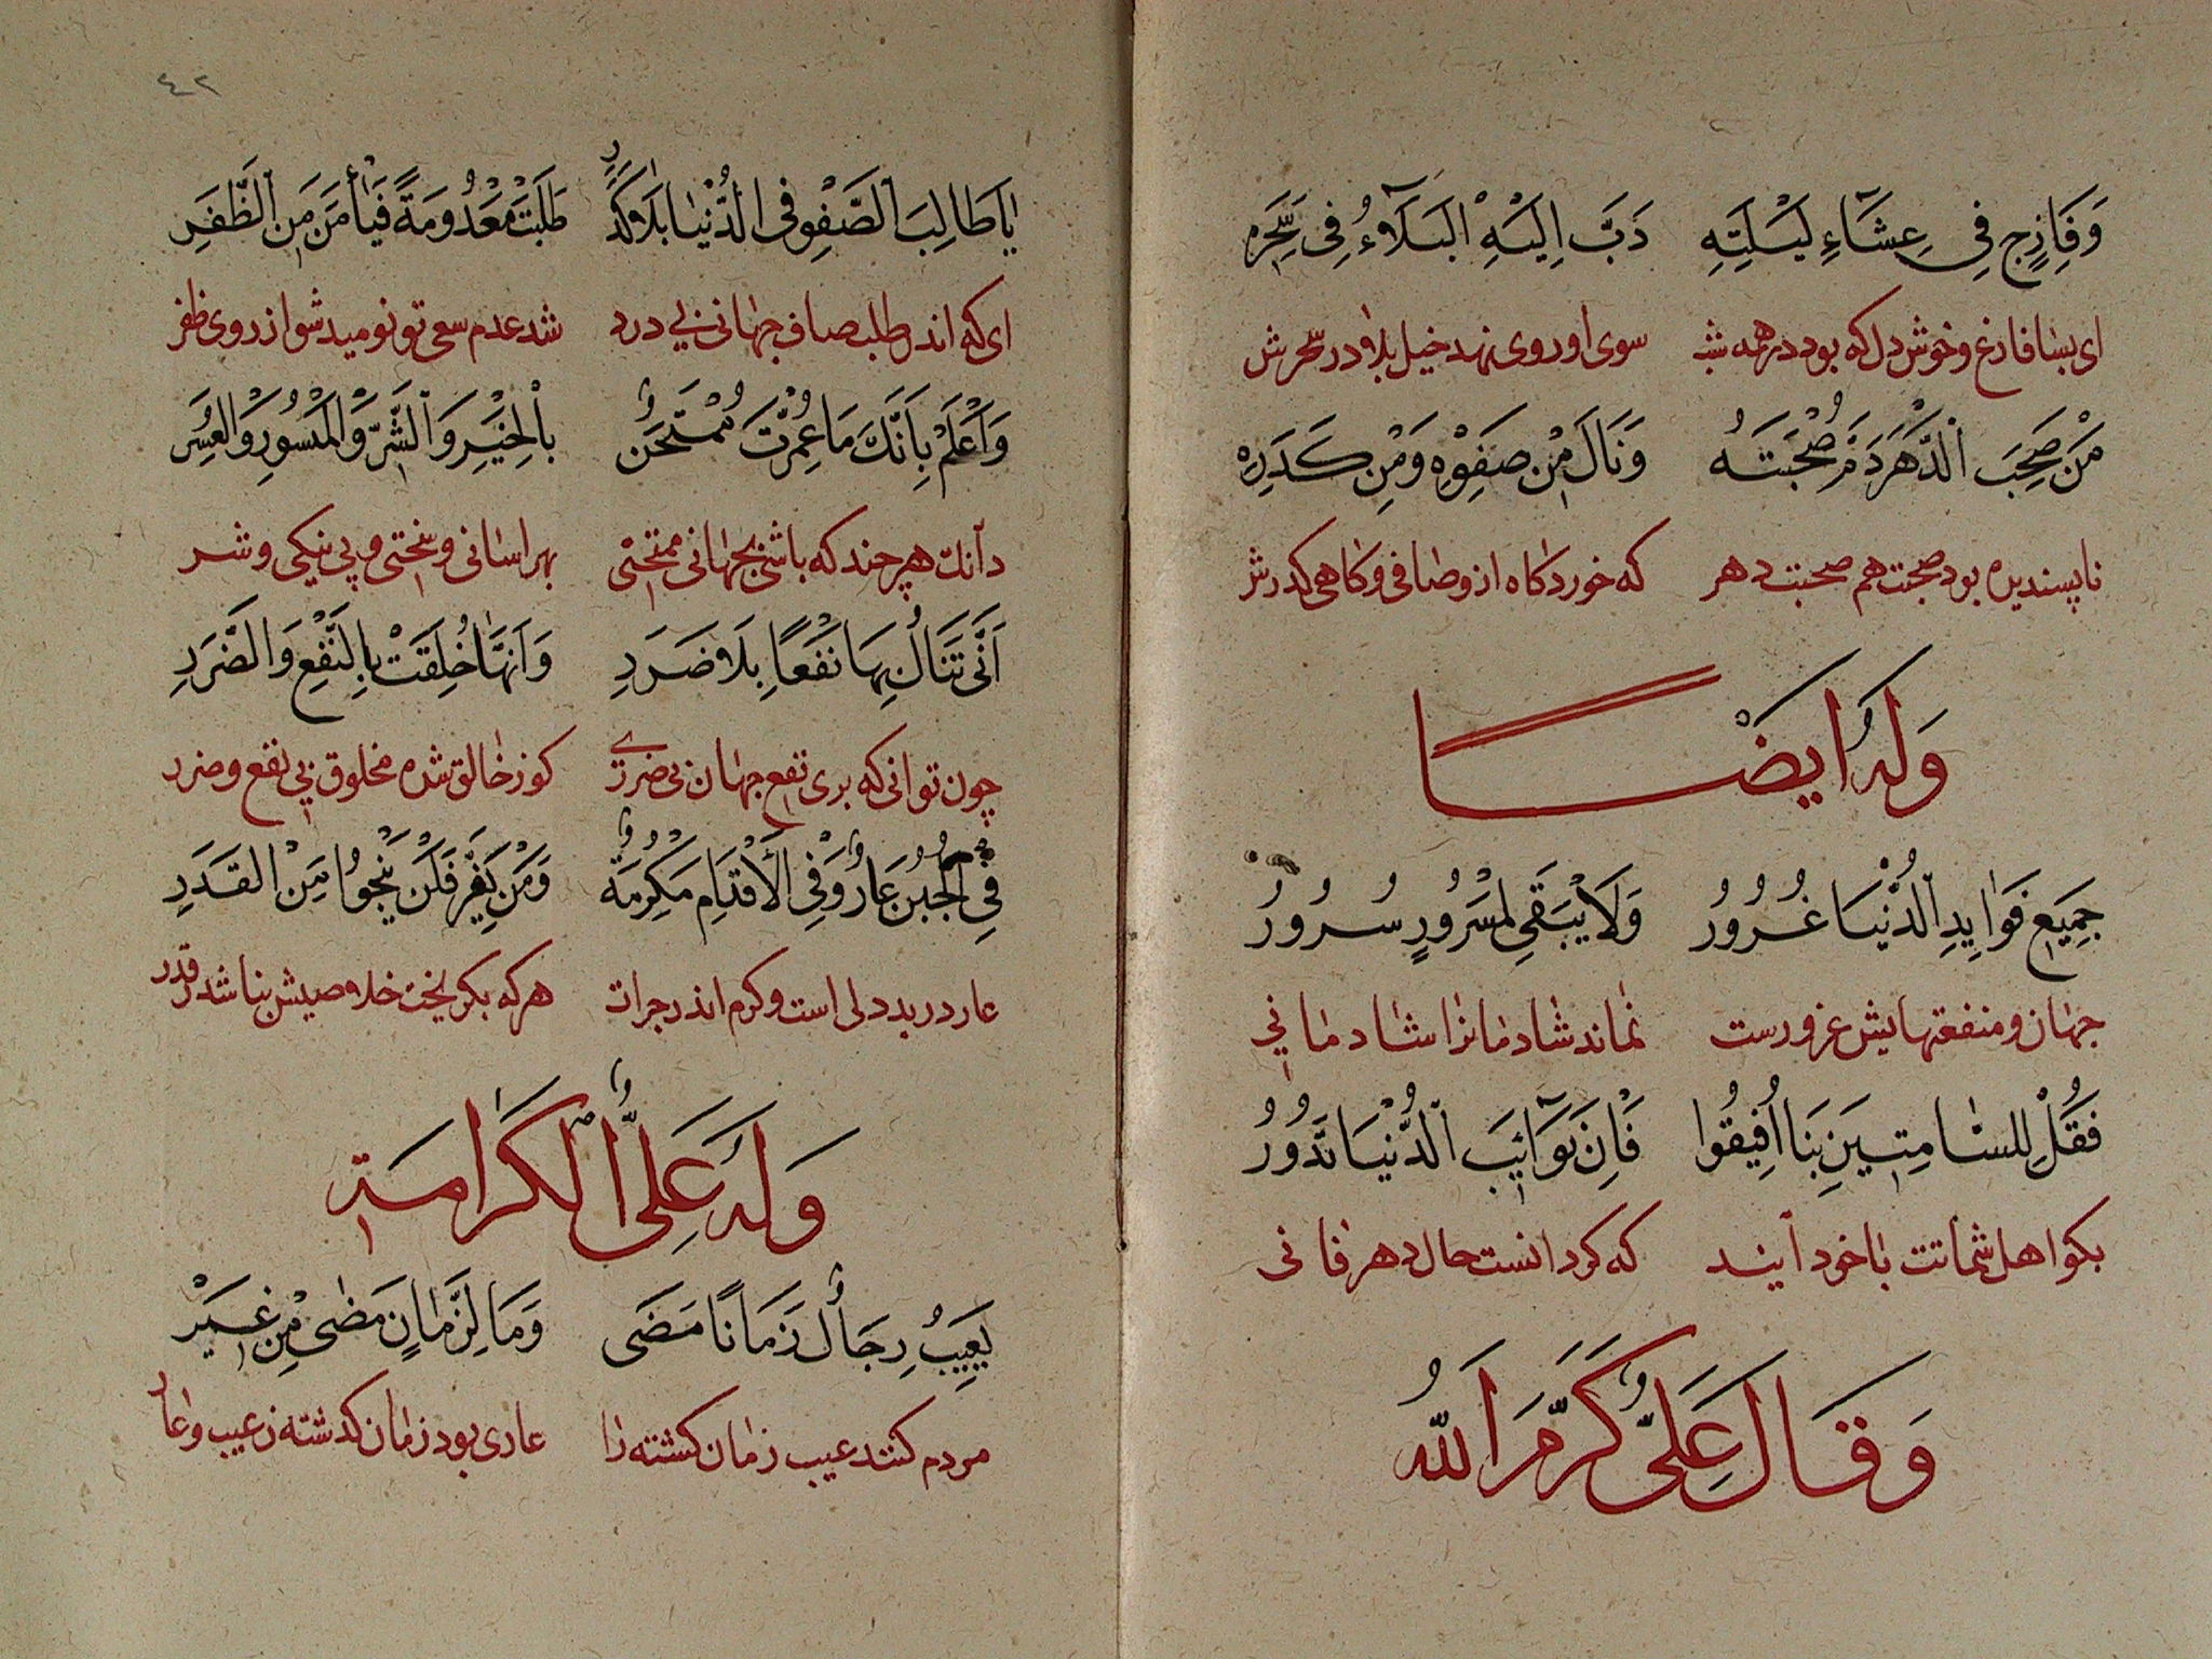 وَفَارِجٍ فِي عِشَاءِ لَيْلَتِهِ دَبَّ اِلَيْهِ الْبَلَآءُ فِي سَحَرِه
ای بسا فارغ و خوش دل که بود در همه شب سوی او روی نهد خیل بلا در سحرش
مَنْ صَحِبَ الدَّهْرَ ذَمَّ صُحْبَتَهُ وَنَالَ مِنْ صَفْوِهِ وَمِنْ كَدَرِه
ناپسندیده بود صحبت هم صحبت دهر که خورد کاه ازو صافی و کاهی کدرش
وَلَهُ اَيْضًا
جَمِيعُ فَوَايِدِ الدُّنْيَا غُرُورُ وَلَا يَبْقَى لِمَسْرُورٍ سُرُورُ
جهان و منفعتهایش غرورست نماند شادمانرا شادمانی
فَقُلْ لِلشَّامِتِينَ بِنَا اَفِيقُوا فَاِنَّ نَوَآئِبَ الدُّنْيَا تَدُورُ
بکو اهل شماتت با خود آیند که کردانست حال دهر فانی
وَقَالَ عَلِيٌّ كَرَّمَ اللهُ
٤٢
يَا طَالِبَ الصَّفْوِ فِي الدُّنْيَا بِلَا كَدَرٍ طَلَبْتَ مَعْدُومَةً فَيَأْمَنَ مِنَ الظَّفَرِ
ای که اندر طلب صاف جهانی بی درد شد عدم سعی تو نومید شو از روی ظفر
وَاعْلَمْ بِاَنَّكَ مَا عُمِّرْتَ مُمْتَحَنٌ بِالْخَيْرِ وَالشَّرِّ وَالْمَيْسُورِ وَالْعُسْرِ
دانك هر چند که باشی بجهانی ممتحنی بهر اسانی و سختی و پی نیکی و شر
اَنَّى تَنَالُ بِهَا نَفْعًا بِلَا ضَرَرِ وَاَنَّهَا خُلِقَتْ بِالنَّفْعِ وَالضَّرَرِ
چون توانی که بری نفع جهان بی ضرری کو ز خالق شده مخلوق پی نفع و ضرر
فِي الْجُبْنِ عَارٌ وَفِي الْأَقْدَامِ مَكْرُمَةٌ وَمَنْ يَفِرَّ فَلَنْ يَنْجُوا مِنَ الْقَدَرِ
عار در بددلی است و کرم اندر جرات هر که بکریخت خلاصیش نباشد ز قدر
وَلَهُ عَلَيُّ الْكَرَامَة
يَعِيبُ رِجَالٌ زَمَانًا مَضَى وَمَا لِزَمَانٍ مَضَى مِنْ غِيَرْ
مردم کنند عیب زمان کشته را عاری بود زمان کذشته ز عیب و عار